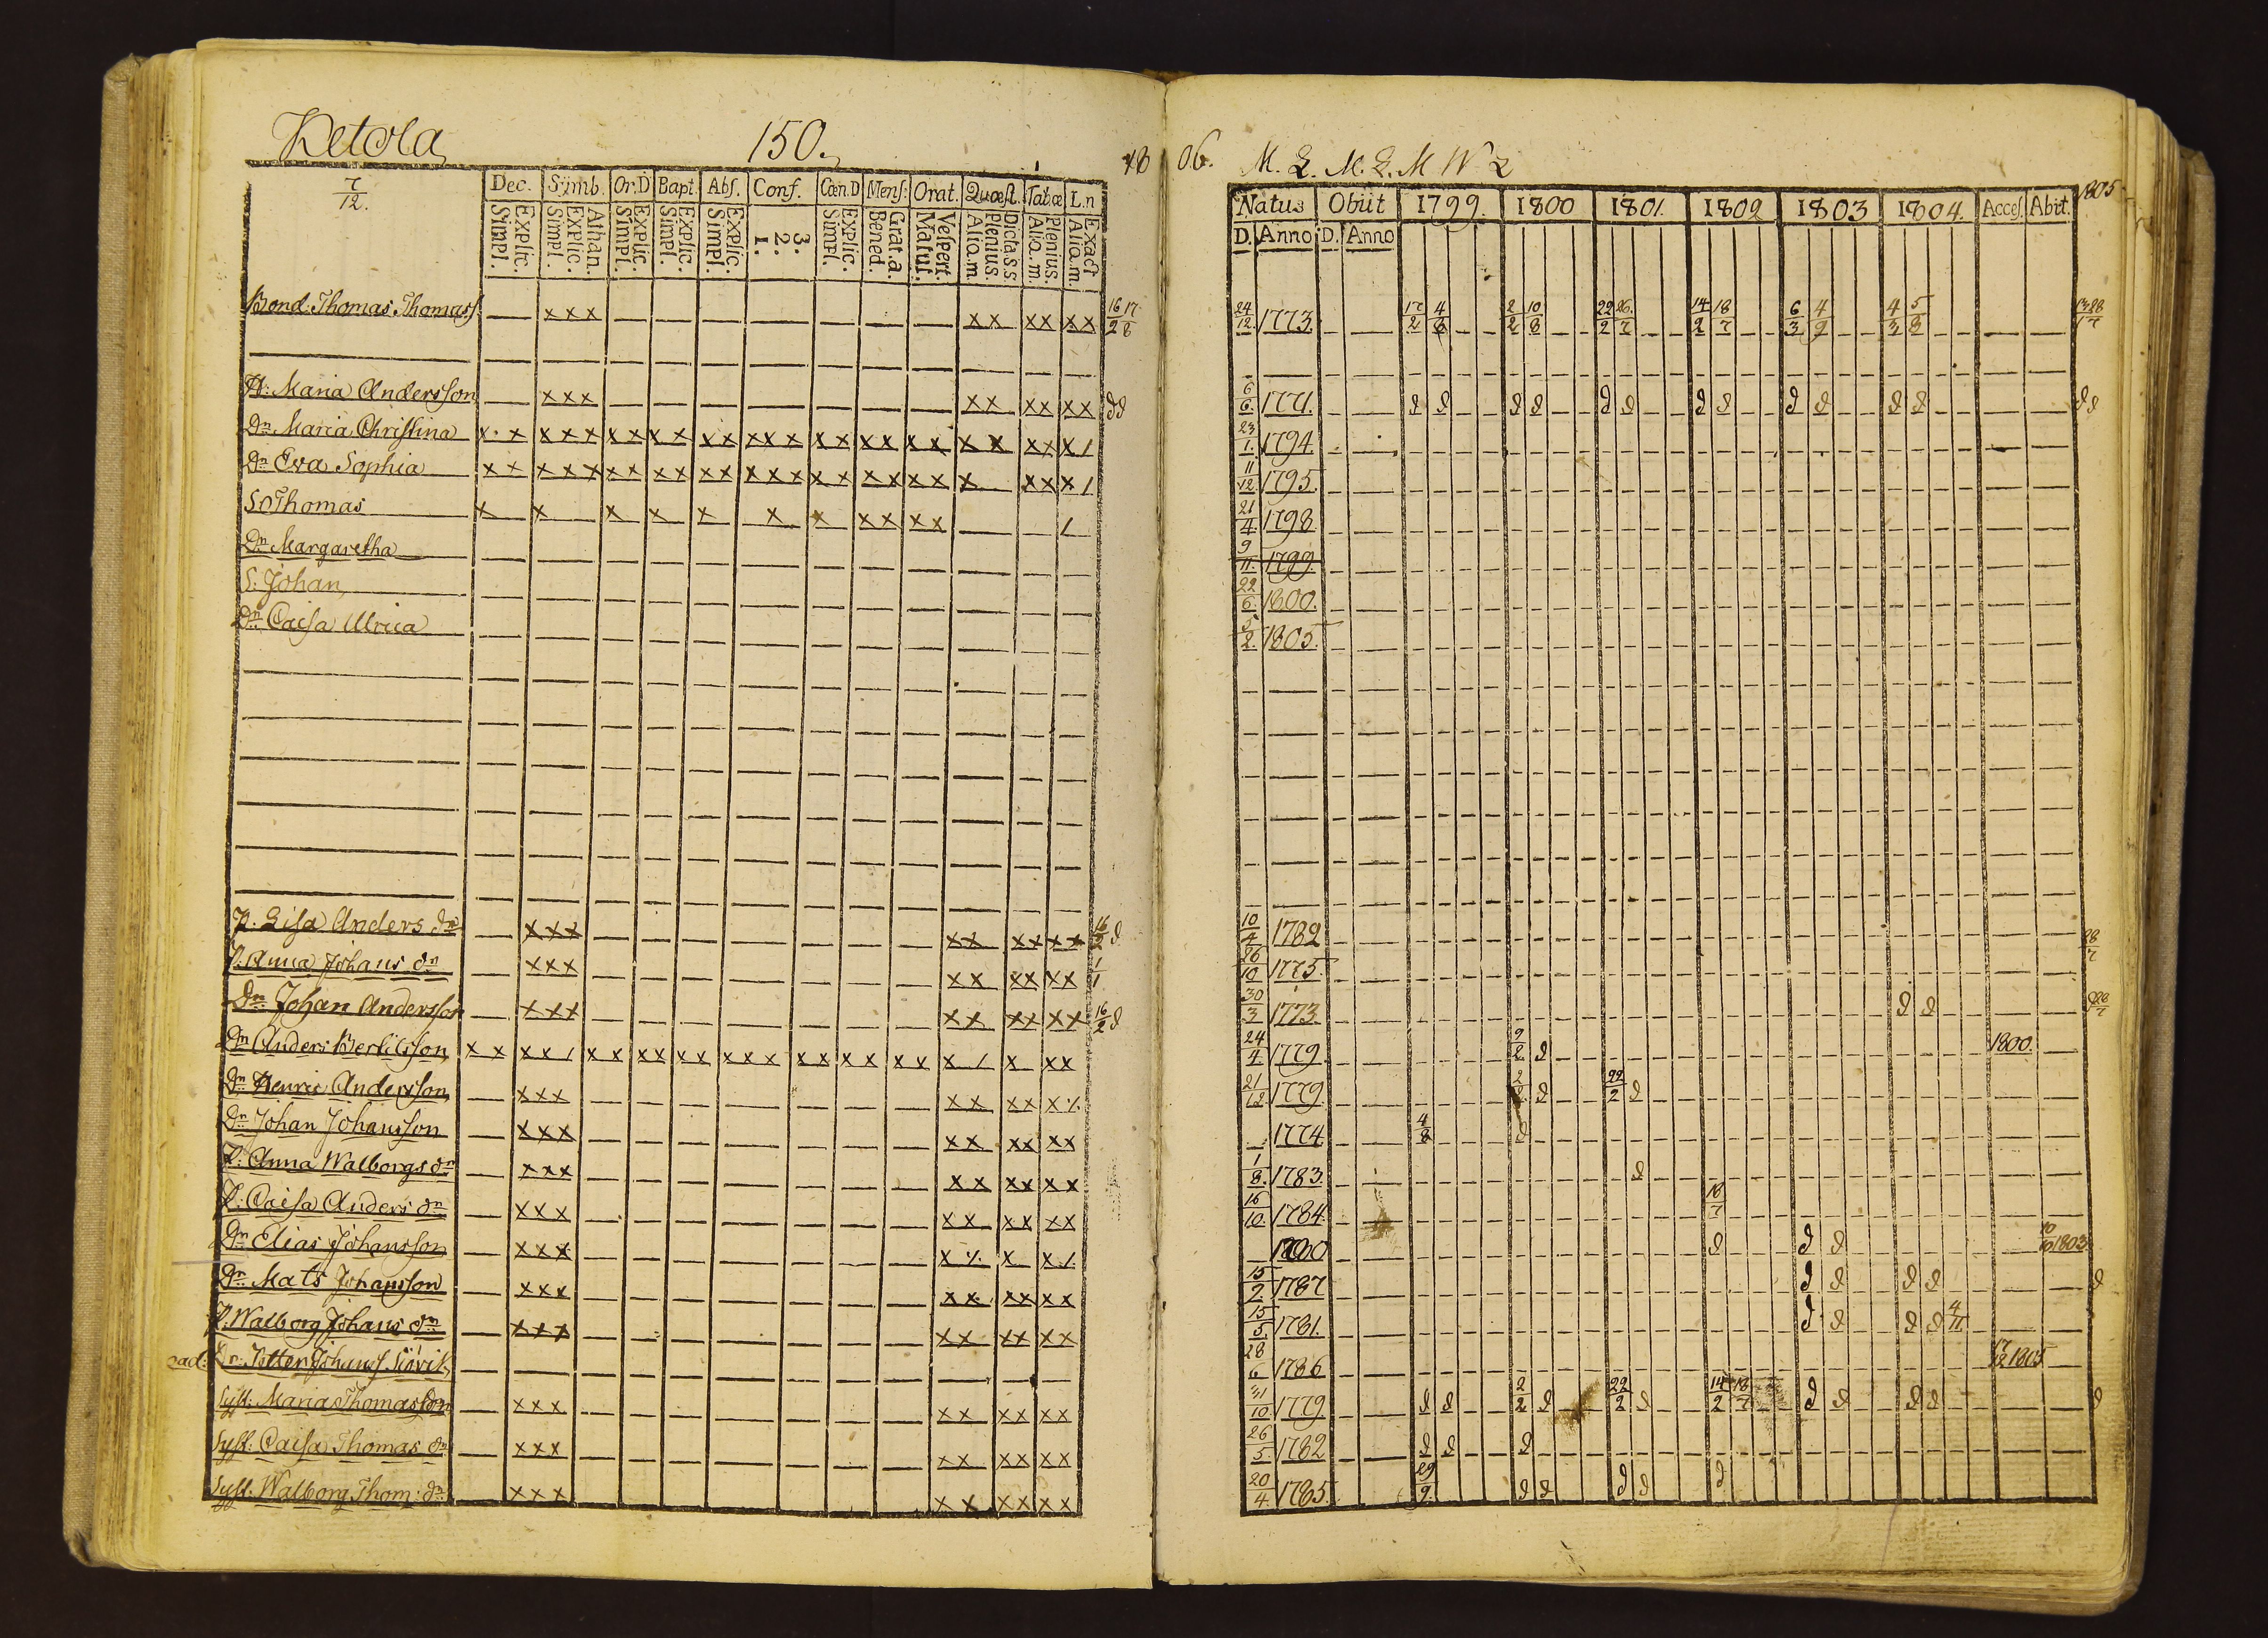 Detola 150.
7/12.
Dec. Symb. Or.D Bapt. Abs. Conf. Cœn.D Mens: Orat. Quæst. Tab.æ L.n
Explic. Simpl. Athan. Explic. Simpl. Explic. Simpl. Explic. Simpl. Explic. Simpl. 3. 2. 1. Explic. Simpl. Grat.a. Bened. Vespert. Matut. Dicta s.s. Plenius. Aliq.m. Plenius. Aliq.m. Exact Aliq.m.
Bond: Thomas Thomass. xxx xx xx xx 16/2 17/8
H: Maria Andersson xxx xx xx xx d d
Dr Maria Christina x x xxx xx xx xx xxx xx xx xx x x xx x /
Dr Eva Sophia x x xxx xx xx xx xxx xx xx xx x xx x /
So Thomas x x x x x x x xx xx /
Dr Margaretha
S: Johan
Dr Caisa Ulrica
P. Lisa Anders dr xxx xx xx xx 16/2 d
P. Anna Johans dr xxx xx xx xx 1/1
Dr Johan Andersson xxx xx xx xx 16/2 d
Dr Anders Bertilsson x x xx / xx xx xx xxx xx xx xx x / x xx
Dr Henric Andersson xxx xx xx x %
Dr Johan Johansson xxx xx xx xx
P: Anna Walborgs dr xxx xx xx xx
P: Caisa Anders dr xxx xx xx xx
Dr Elias Johansson xxx x % x x /
Dr Mats Johansson xxx xx xx xx
P. Walborg Johans dr xxx xx xx xx
Dr: Petter Johanss. Siövik
Syst: Maria Thomasdr xxx xx xx xx
Syst: Caisa Thomas dr xxx xx xx xx
Syst: Walborg Thom: dr xxx xx xx xx
18 06. M. L. M. L. M W L
Natus Obiit 1799. 1800 1801. 1802 1803 1804. Acces. Abit. 1805
D. Anno D. Anno
24/12 1773. 17/2 4/8 2/2 10/8 22/2 26/7 14/2 18/7 6/3 4/9 4/3 5/8 13/1 28/7
6/6. 1771. d d d d d d d d d d d d d d
23/1. 1794.
11/12 1795.
21/4 1798
9/11. 1799
22/6. 1800.
5/2. 1805.
10/4 1782 28/7
26/10 1775.
30/3 1773. d d 28/7
24/4 1779. 2/2 d 1800.
21/12 1779 2/2 d 22/2 d
1774 4/8 d
1/8. 1783. d
16/10. 1784. 18/7
d d d 10/10 1803
15/2. 1787 d d d d d
15/5. 1781. d d d d 4/11
28/6 1786 1805
31/10 1779 d d 2/2 d 22/2 d 14/2 18/7 d d d d d
26/5. 1782 d d d
20/4. 1785. 29/9. d d d d d